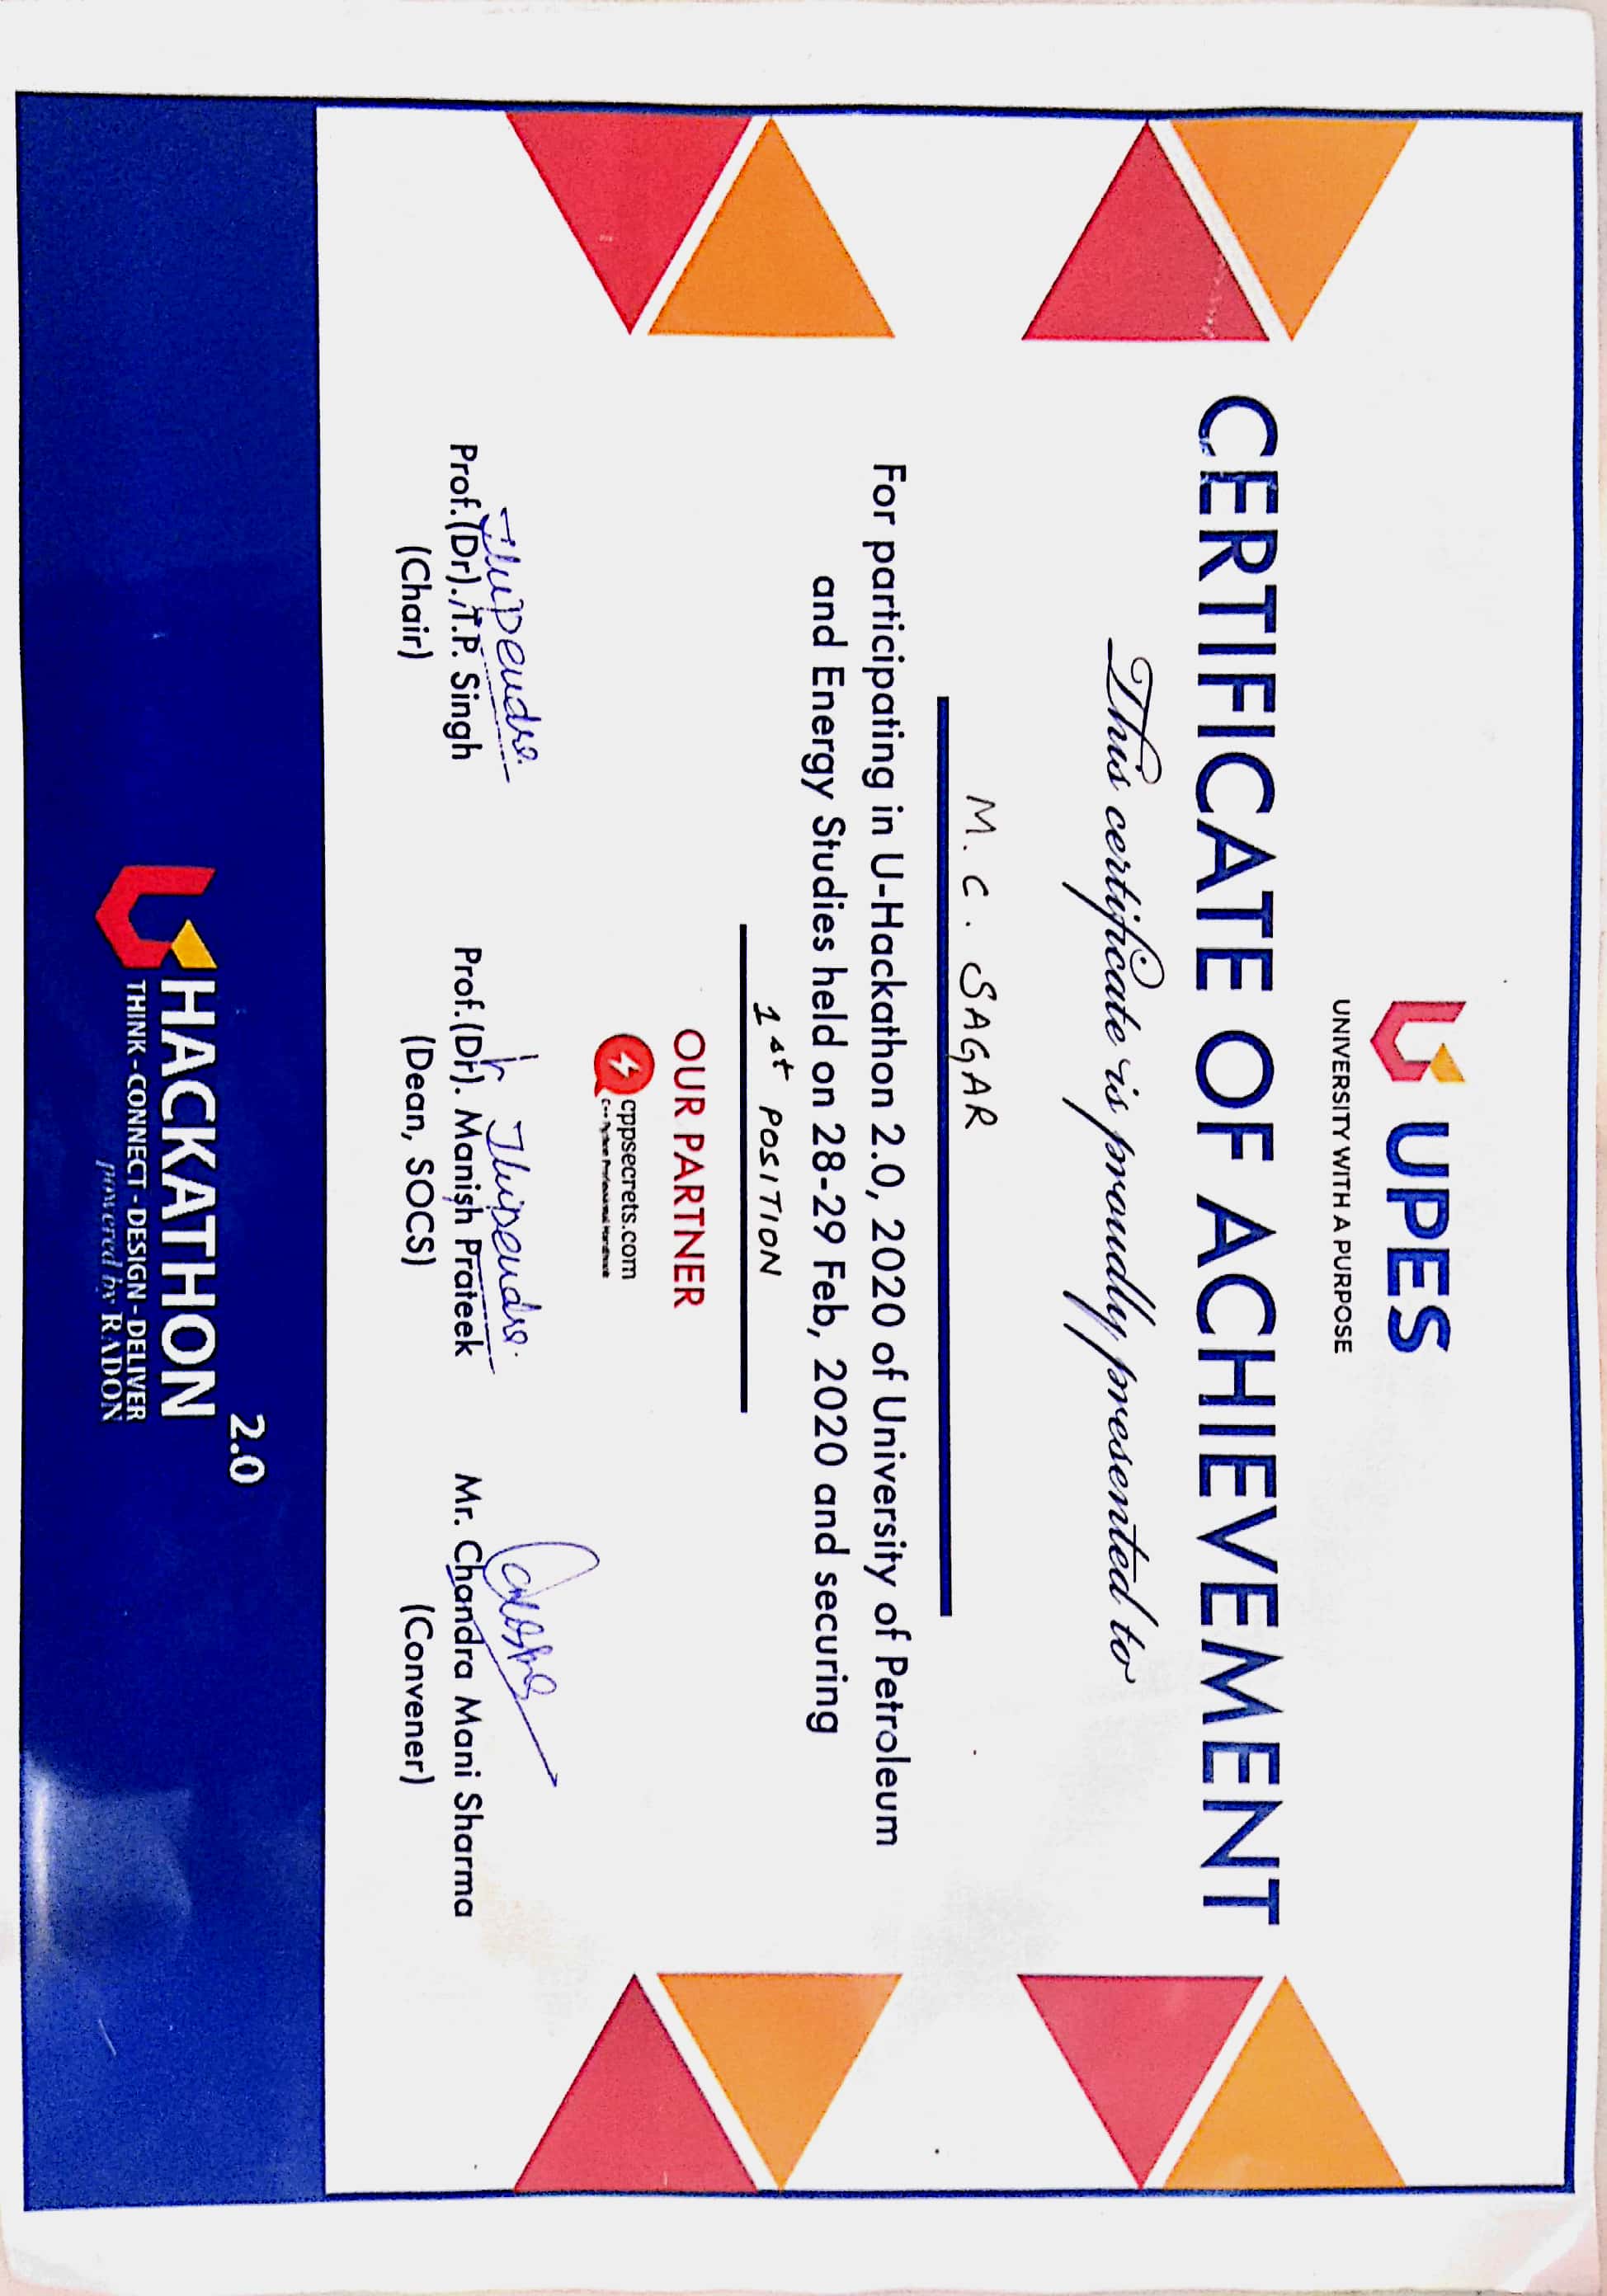 UPES
UNIVERSITY WITH A PURPOSE
CERTIFICATE OF ACHIEVEMENT
This certificate is proudly presented to
M. C. SAGAR
For participating in U-Hackathon 2.0, 2020 of University of Petroleum
and Energy Studies held on 28-29 Feb, 2020 and securing
1st POSITION
OUR PARTNER
cppsecrets.com
C++ Python Professional Handbook
Prof.(Dr). T.P. Singh
(Chair)
Prof.(Dr). Manish Prateek
(Dean, SOCS)
Mr. Chandra Mani Sharma
(Convener)
2.0
HACKATHON
THINK - CONNECT - DESIGN - DELIVER
powered by RADON